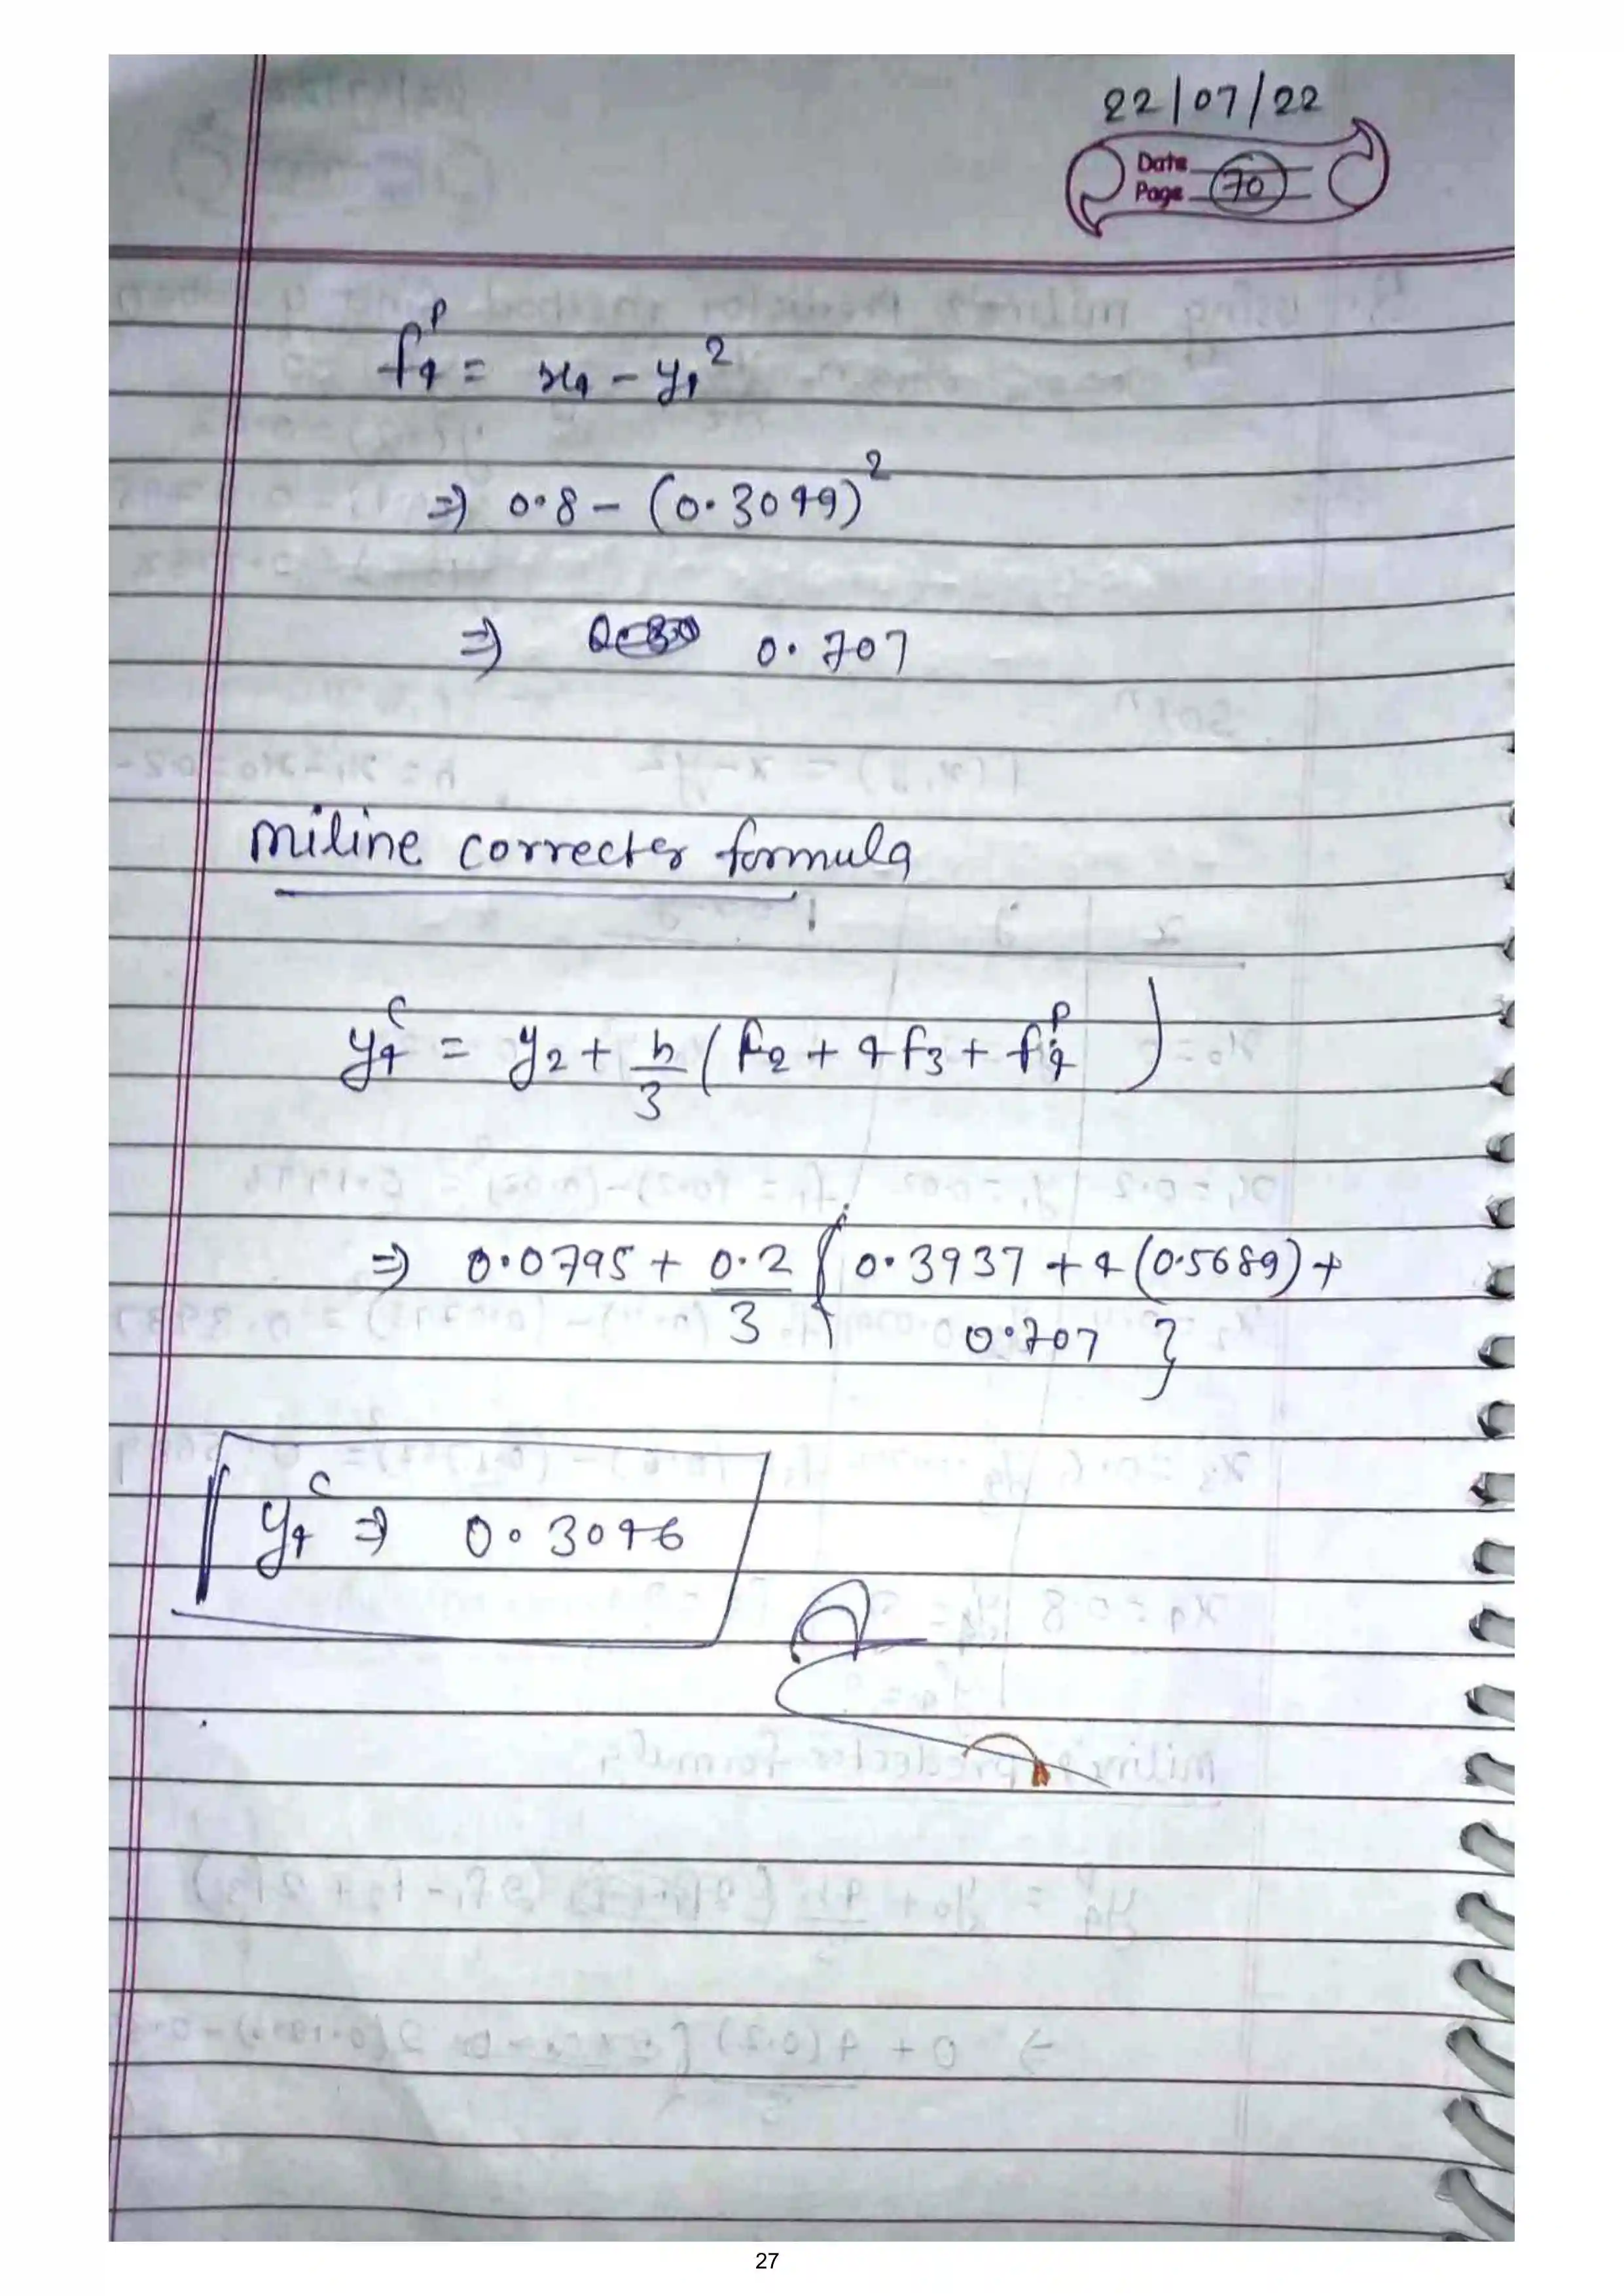 22/07/22
Date
Page 70
f4^p = x4 - y4^2
⇒ 0.8 - (0.3049)^2
⇒ 0.707
Miline correcter formula
y4^c = y2 + h/3 (f2 + 4f3 + f4^p)
⇒ 0.0795 + 0.2/3 { 0.3937 + 4(0.5689) +
0.707 }
y4^c ⇒ 0.3046
27